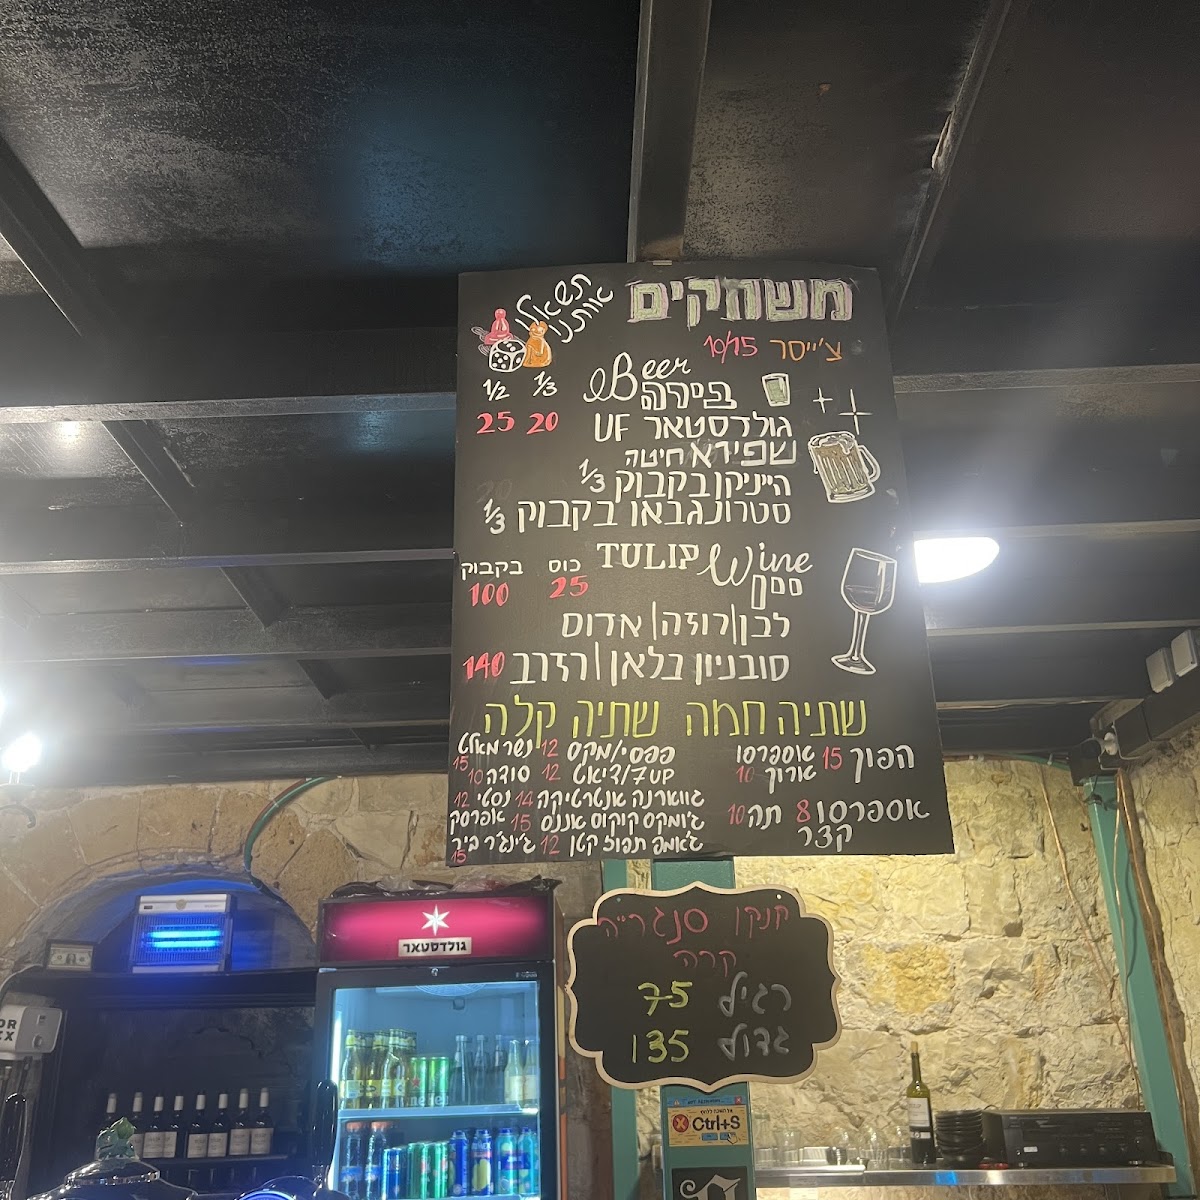 משחקים
תשאלו
אותנו
צ'ייסר 10/15
Beer
בירה
1/2 1/3
25 20
גולדסטאר UF
שפירא חיטה
הייניקן בקבוק 1/3
סטרונגבאו בקבוק 1/3
Wine TULIP
יין
כוס בקבוק
25 100
לבן|רוזה|אדום
סובניון בלאן|רזרב 140
שתיה חמה
הפוך 15 אספרסו
ארוך 10
אספרסו 8 תה 10
קצר
שתיה קלה
פפסי/מקס 12 נשר מאלט 15
7UP/דיאט 12 סודה 10
גווארנה אנטרטיקה 14 נסטי 12
ג'ומקס קוקוס אננס 15 אפרסק
ג'אמפ תפוז קטן 12 ג'ינג'ר ביר
15
גולדסטאר
קנקן סנגרייה
קרה
רגיל 75
גדול 135
Ctrl+S